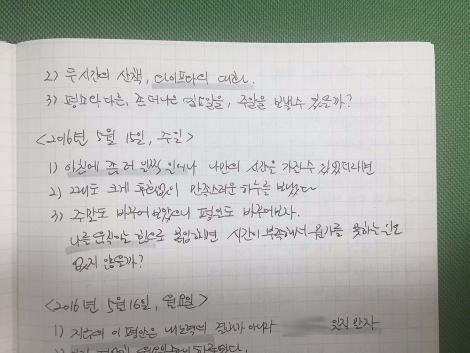 2) 두시간의 산책, 다이포다의 대화.
3) 평소와 다른, 좀 더 나은 일요일을, 주일을 보낼 수 있을까?
<2016년 5월 15일, 주일>
1) 아침에 좀 더 일찍 일어나 나만의 시간을 가질 수 있었더라면
2) 그래도 크게 후회없이 만족스러운 하루를 보냈다
3) 주말도 바꾸어 보았으니 평일도 바꾸어보자.
나를 움직이는 힘으로 몰입하면 시간이 부족해서 뭔가를 못하는 일도
없지 않을까?
<2016년 5월 16일, 월요일>
1) 지금의 이 평안은 내 노력의 결과가 아니다 잊지 말자